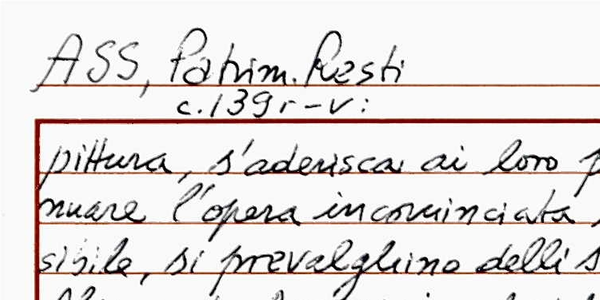 ASS, Patrim. Resti
c. 139 r-v:
pittura, s'aderisca ai loro p
nuare l'opera incominciata
sibile, si prevalghino delli s